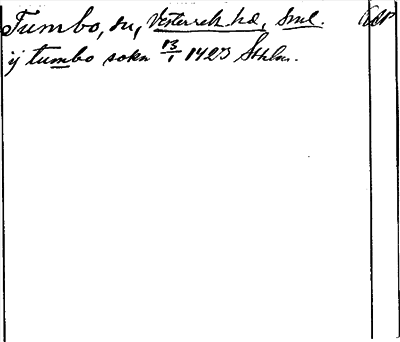 Tumbo, sn, Västerrek hd, Sml.
ij tumbo sokn 13/1 1423 Sthlm.